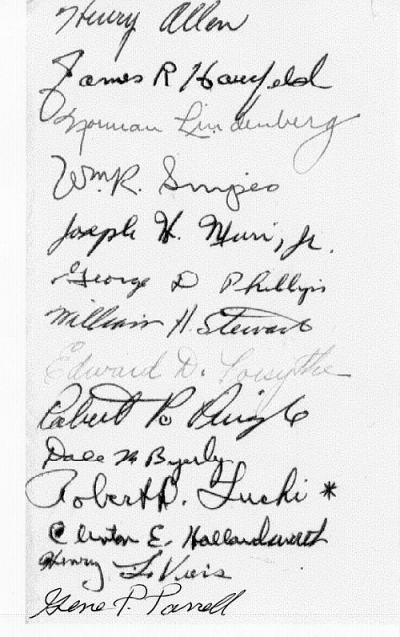 Henry Allen
James R Hatfield
Norman Lindenberg
Wm. R.
Joseph H. Muri, Jr.
George D Phillips
William H. Stewart
Edward D. Forsythe
Robert
Dale M Byerly
Robert D. *
Clinton E. Hollandsworth
Henry
Gene P. Parrell